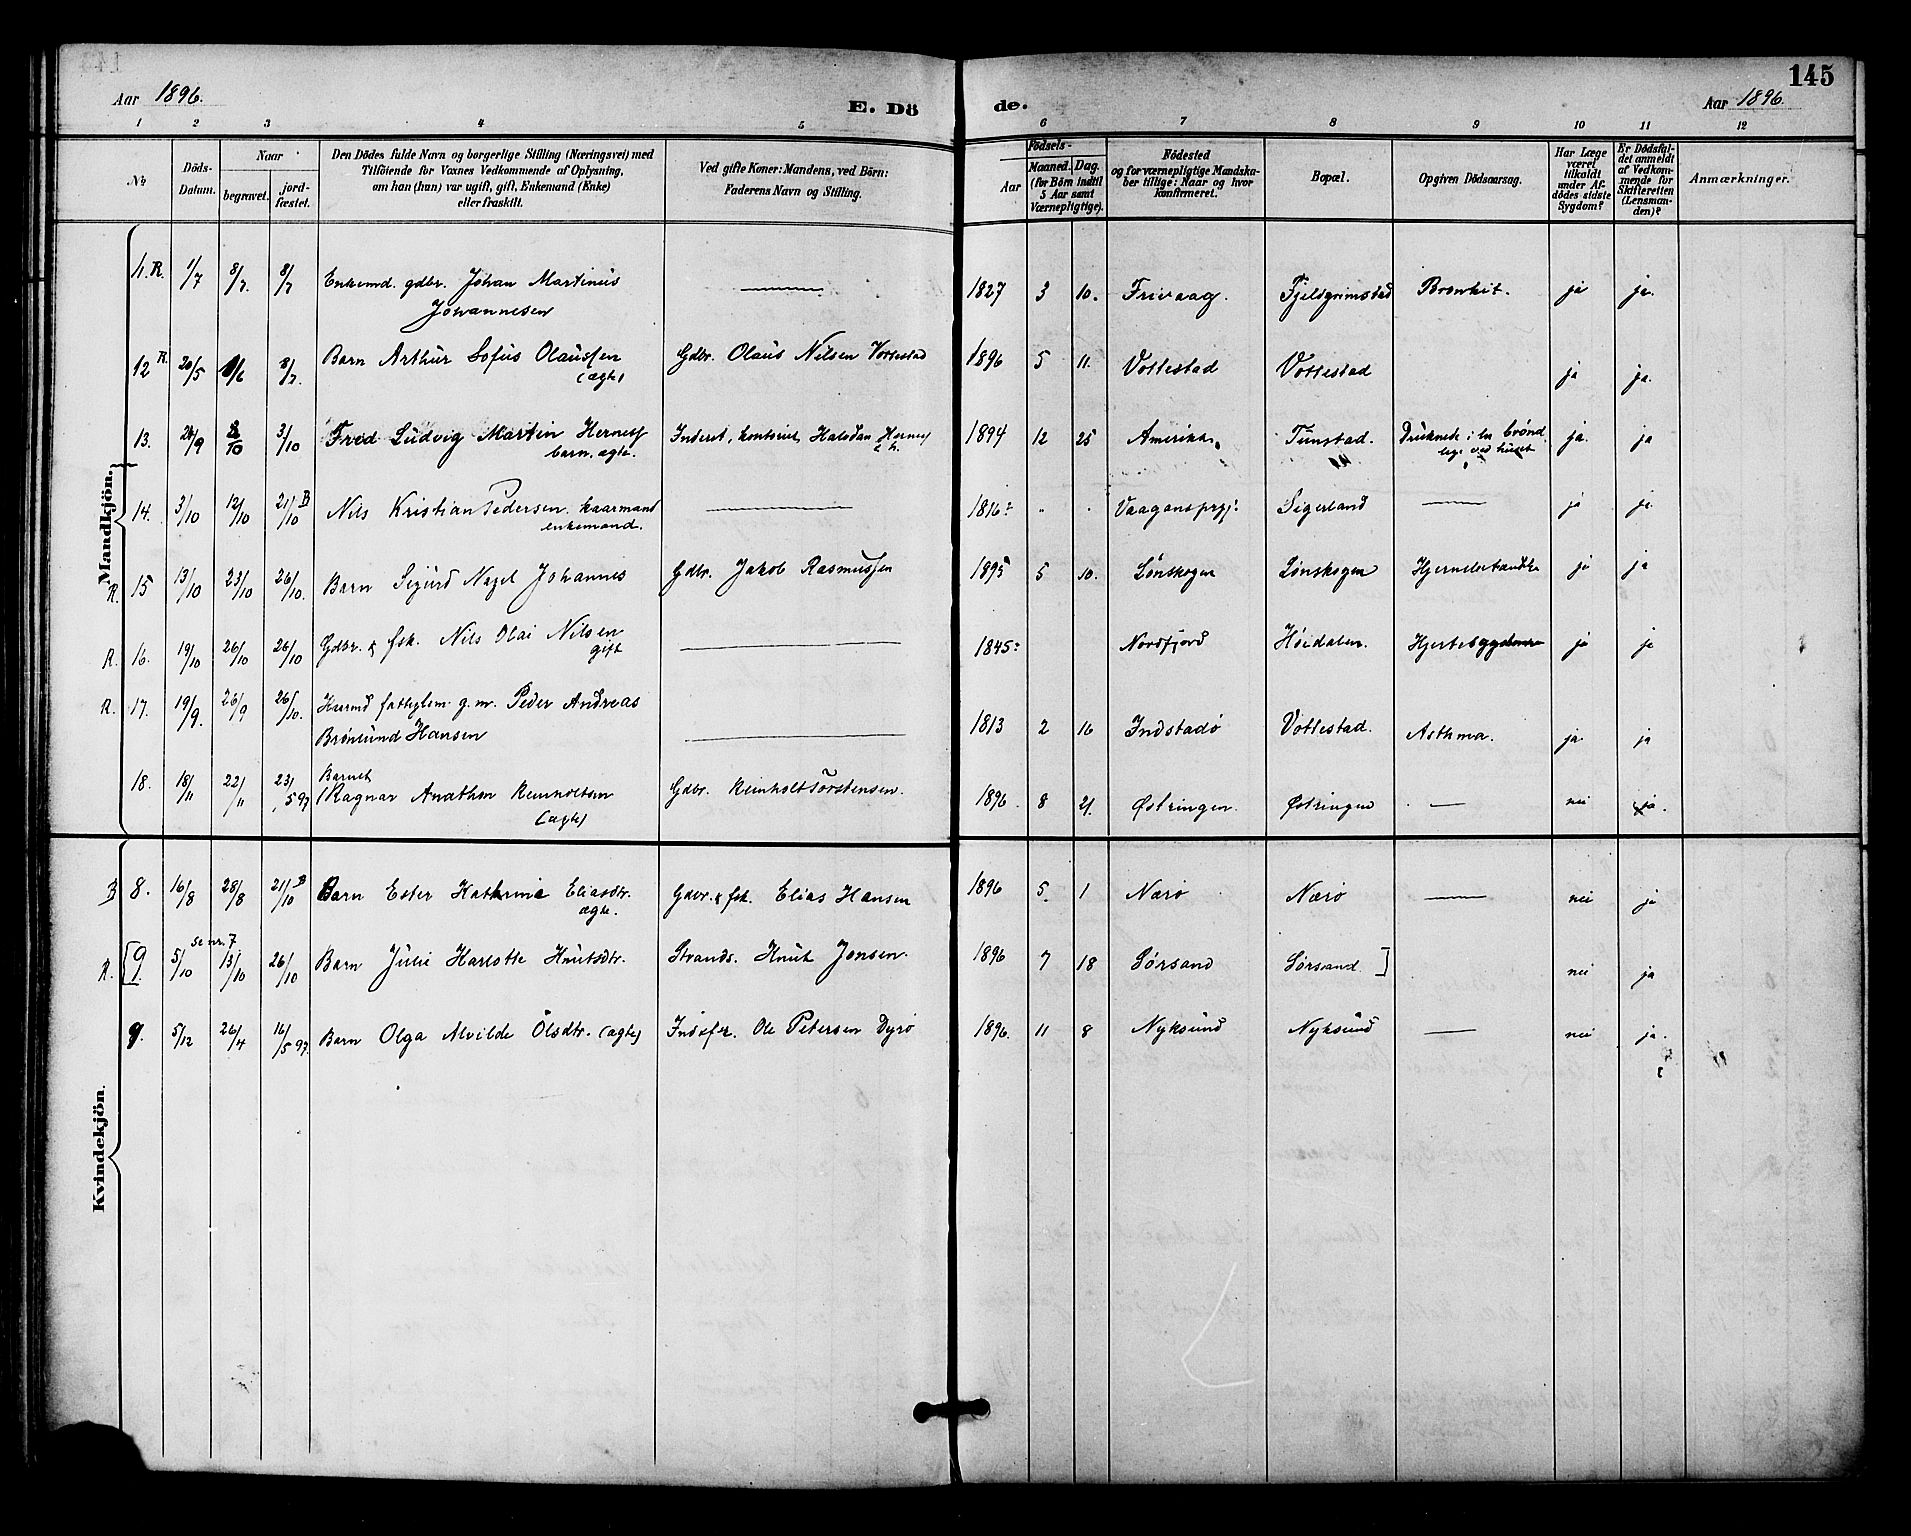 145
Aar 1896.
E. Dö
de.
Aar 1896.
1 2 3 4 5 6 7 8 9 10 11 12
№
Döds-
Datum.
Naar
begravet.
jord-
fæstet.
Den Dödes fulde Navn og borgerlige Stilling (Næringsvei) med
Tilföiende for Voxnes Vedkommende af Oplysning,
om han (hun) var ugift, gift, Enkemand (Enke)
eller fraskilt.
Ved gifte Koner: Mandens, ved Börn:
Faderens Navn og Stilling.
Födsels-
Aar
Maaned. Dag.
(for Börn indtil
5 Aar samt
Værnepligtige).
Födested
og for værnepligtige Mandska-
ber tillige: Naar og hvor
konfirmeret.
Bopæl.
Opgiven Dödsaarsag.
Har Læge
været
tilkaldt
under Af-
dödes sidste
Sygdom?
Er Dödsfal-
det anmeldt
af Vedkom-
mende for
Skifteretten
(Lensman-
den)?
Anmærkninger.
Mandkjön.
R. 1/7 8/7. 8/7 Enkemd. gdbr. Johan Martinus
Johannesen
1827 3 10. Frivaag. Fjeldgrimstad Bronkit. ja ja.
12 R. 20/5 1/6 8/7. Barn Arthur Sofus Olaussen
(ægte)
Gdbr. Olaus Nilsen Vottestad 1896 5 11. Vottestad Vottestad ja ja.
13. /9 /10 3/10 Fred Ludvig Martin Herness
barn. ægte.
Inderst, Halvdan Herness 1894 12 25 Amerika. Tunstad. Druknede i en brønd
ved huset
ja. ja
14. 3/10 12/10 21/10 B Nils Kristian Pedersen. kaarmand
enkemand.
1816: " " Vaagansprgj: Sigerland ja ja.
R. 15 13/10 23/10 26/10. Barn Sigurd Nagel Johannes Gdbr. Jakob Rasmussen 1895 5 10. Lønskogen Lønskogen ja ja
R. 16. 19/10 26/10 26/10 Gdbr. & fsk. Nils Olai Nilsen
gift
1845: Nordfjord Høidalen. ja ja
R. 17. 19/9. 26/9 26/10. g.m. Peder Andreas
Brønlund Hansen
1813 2 16 Indstadø Vottestad. Asthma. ja. ja
18. 18/11 22/11 23/5 97 Barnet
Ragnar Anathon Reinholtsen
(ægte)
Gdbr. Reinholt Torstensen. 1896. 8 21. Østringen. Østringen nei ja.
Kvindekjön.
B 8. 16/8 28/8 21/10 B Barn Ester Kathrine Eliasdtr.
ægte.
Gdbr. & fsk. Elias Hansen 1896 5. 1 Nærø Nærø nei ja
se nr. 7
R. [9. 5/10 13/10 26/10 Barn Julie Harlotte Knutsdtr. Strands. Knut Jonsen. 1896 7 18 Sørsand Sørsand ] nei ja
9. 5/12 26/4 16/5 97. Barn Olga Alvilde Olsdtr. (ægte) Indsfr. Ole Petersen Dyrø 1896. 11 8 Nyksund Nyksund nei ja.